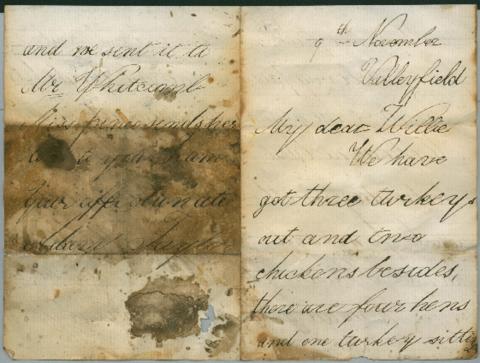 9th November
Valleyfield
My dear Willie
We have
got three turkeys
out and two
chickens besides,
there are four hens
and one turkey sitting
and we sent it to
Mr Whitcomb
Miss sends her
to your
Your affectionate